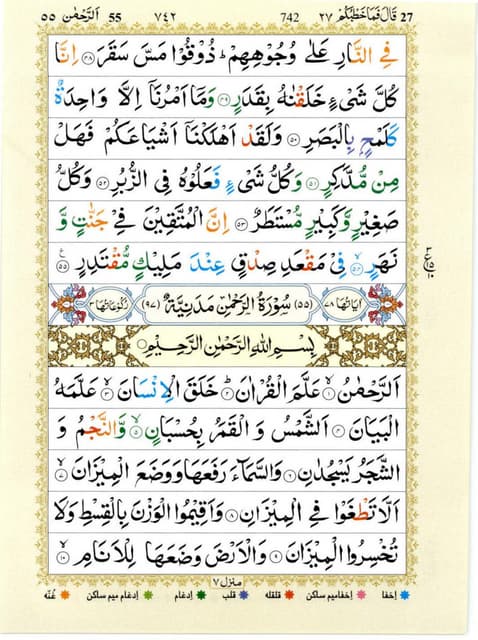 27 قَالَ فَمَا خَطْبُكُمْ ٢٧ 742 ٧٤٢ 55 اَلرَّحْمٰن ٥٥
فِي النَّارِ عَلٰى وُجُوْهِهِمْ ؕ ذُوْقُوْا مَسَّ سَقَرَ ﴿۴۸﴾ اِنَّا
كُلَّ شَيْءٍ خَلَقْنٰهُ بِقَدَرٍ ﴿۴۹﴾ وَمَاۤ اَمْرُنَاۤ اِلَّا وَاحِدَةٌ
كَلَمْحٍۭ بِالْبَصَرِ ﴿۵۰﴾ وَلَقَدْ اَهْلَكْنَاۤ اَشْيَاعَكُمْ فَهَلْ
مِنْ مُّدَّكِرٍ ﴿۵۱﴾ وَكُلُّ شَيْءٍ فَعَلُوْهُ فِي الزُّبُرِ ﴿۵۲﴾ وَكُلُّ
صَغِيْرٍ وَّكَبِيْرٍ مُّسْتَطَرٌ ﴿۵۳﴾ اِنَّ الْمُتَّقِيْنَ فِيْ جَنّٰتٍ وَّ
نَهَرٍ ﴿۵۴﴾ فِيْ مَقْعَدِ صِدْقٍ عِنْدَ مَلِيْكٍ مُّقْتَدِرٍ ﴿۵۵﴾
اٰيَاتُهَا ٧٨ (٥٥) سُوْرَةُ الرَّحْمٰنِ مَدَنِيَّةٌ (٩٧) رُكُوْعَاتُهَا ٣
بِسْمِ اللّٰهِ الرَّحْمٰنِ الرَّحِيْمِ
اَلرَّحْمٰنُ ﴿۱﴾ عَلَّمَ الْقُرْاٰنَ ﴿۲﴾ خَلَقَ الْاِنْسَانَ ﴿۳﴾ عَلَّمَهُ
الْبَيَانَ ﴿۴﴾ اَلشَّمْسُ وَ الْقَمَرُ بِحُسْبَانٍ ﴿۵﴾ وَّالنَّجْمُ وَ
الشَّجَرُ يَسْجُدٰنِ ﴿۶﴾ وَالسَّمَآءَ رَفَعَهَا وَوَضَعَ الْمِيْزَانَ ﴿۷﴾
اَلَّا تَطْغَوْا فِي الْمِيْزَانِ ﴿۸﴾ وَاَقِيْمُوا الْوَزْنَ بِالْقِسْطِ وَلَا
تُخْسِرُوا الْمِيْزَانَ ﴿۹﴾ وَالْاَرْضَ وَضَعَهَا لِلْاَنَامِ ﴿۱۰﴾
منزل ٧
اخفا اخفا میم ساکن قلقلہ قلب ادغام ادغام میم ساکن غنّہ